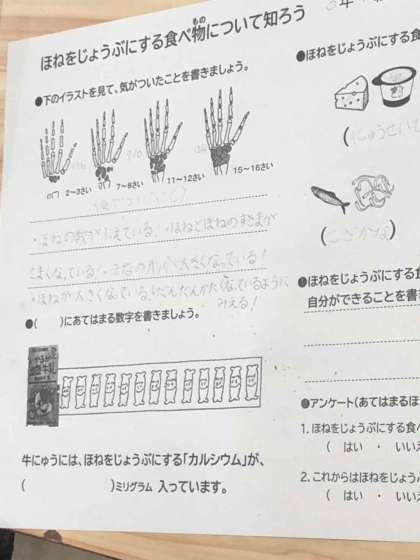 ほねをじょうぶにする食べ物について知ろう
もの
●下のイラストを見て、気がついたことを書きましょう。
2~3さい
7~8さい
11~12さい
15~16さい
・ほねの数がふえている。・ほねとほねのすきまが
大きくなっている!
・ほねが大きくなっている。
みえる!
●( )にあてはまる数字を書きましょう。
牛にゅうには、ほねをじょうぶにする「カルシウム」が、
( )ミリグラム 入っています。
●ほねをじょうぶにする食
(にゅうせいひ
(こざかな)
●ほねをじょうぶにする食
自分ができることを書
●アンケート(あてはまるほ
1. ほねをじょうぶにする食べ
( はい ・ いいえ
2. これからはほねをじょうぶ
( はい ・ いいえ